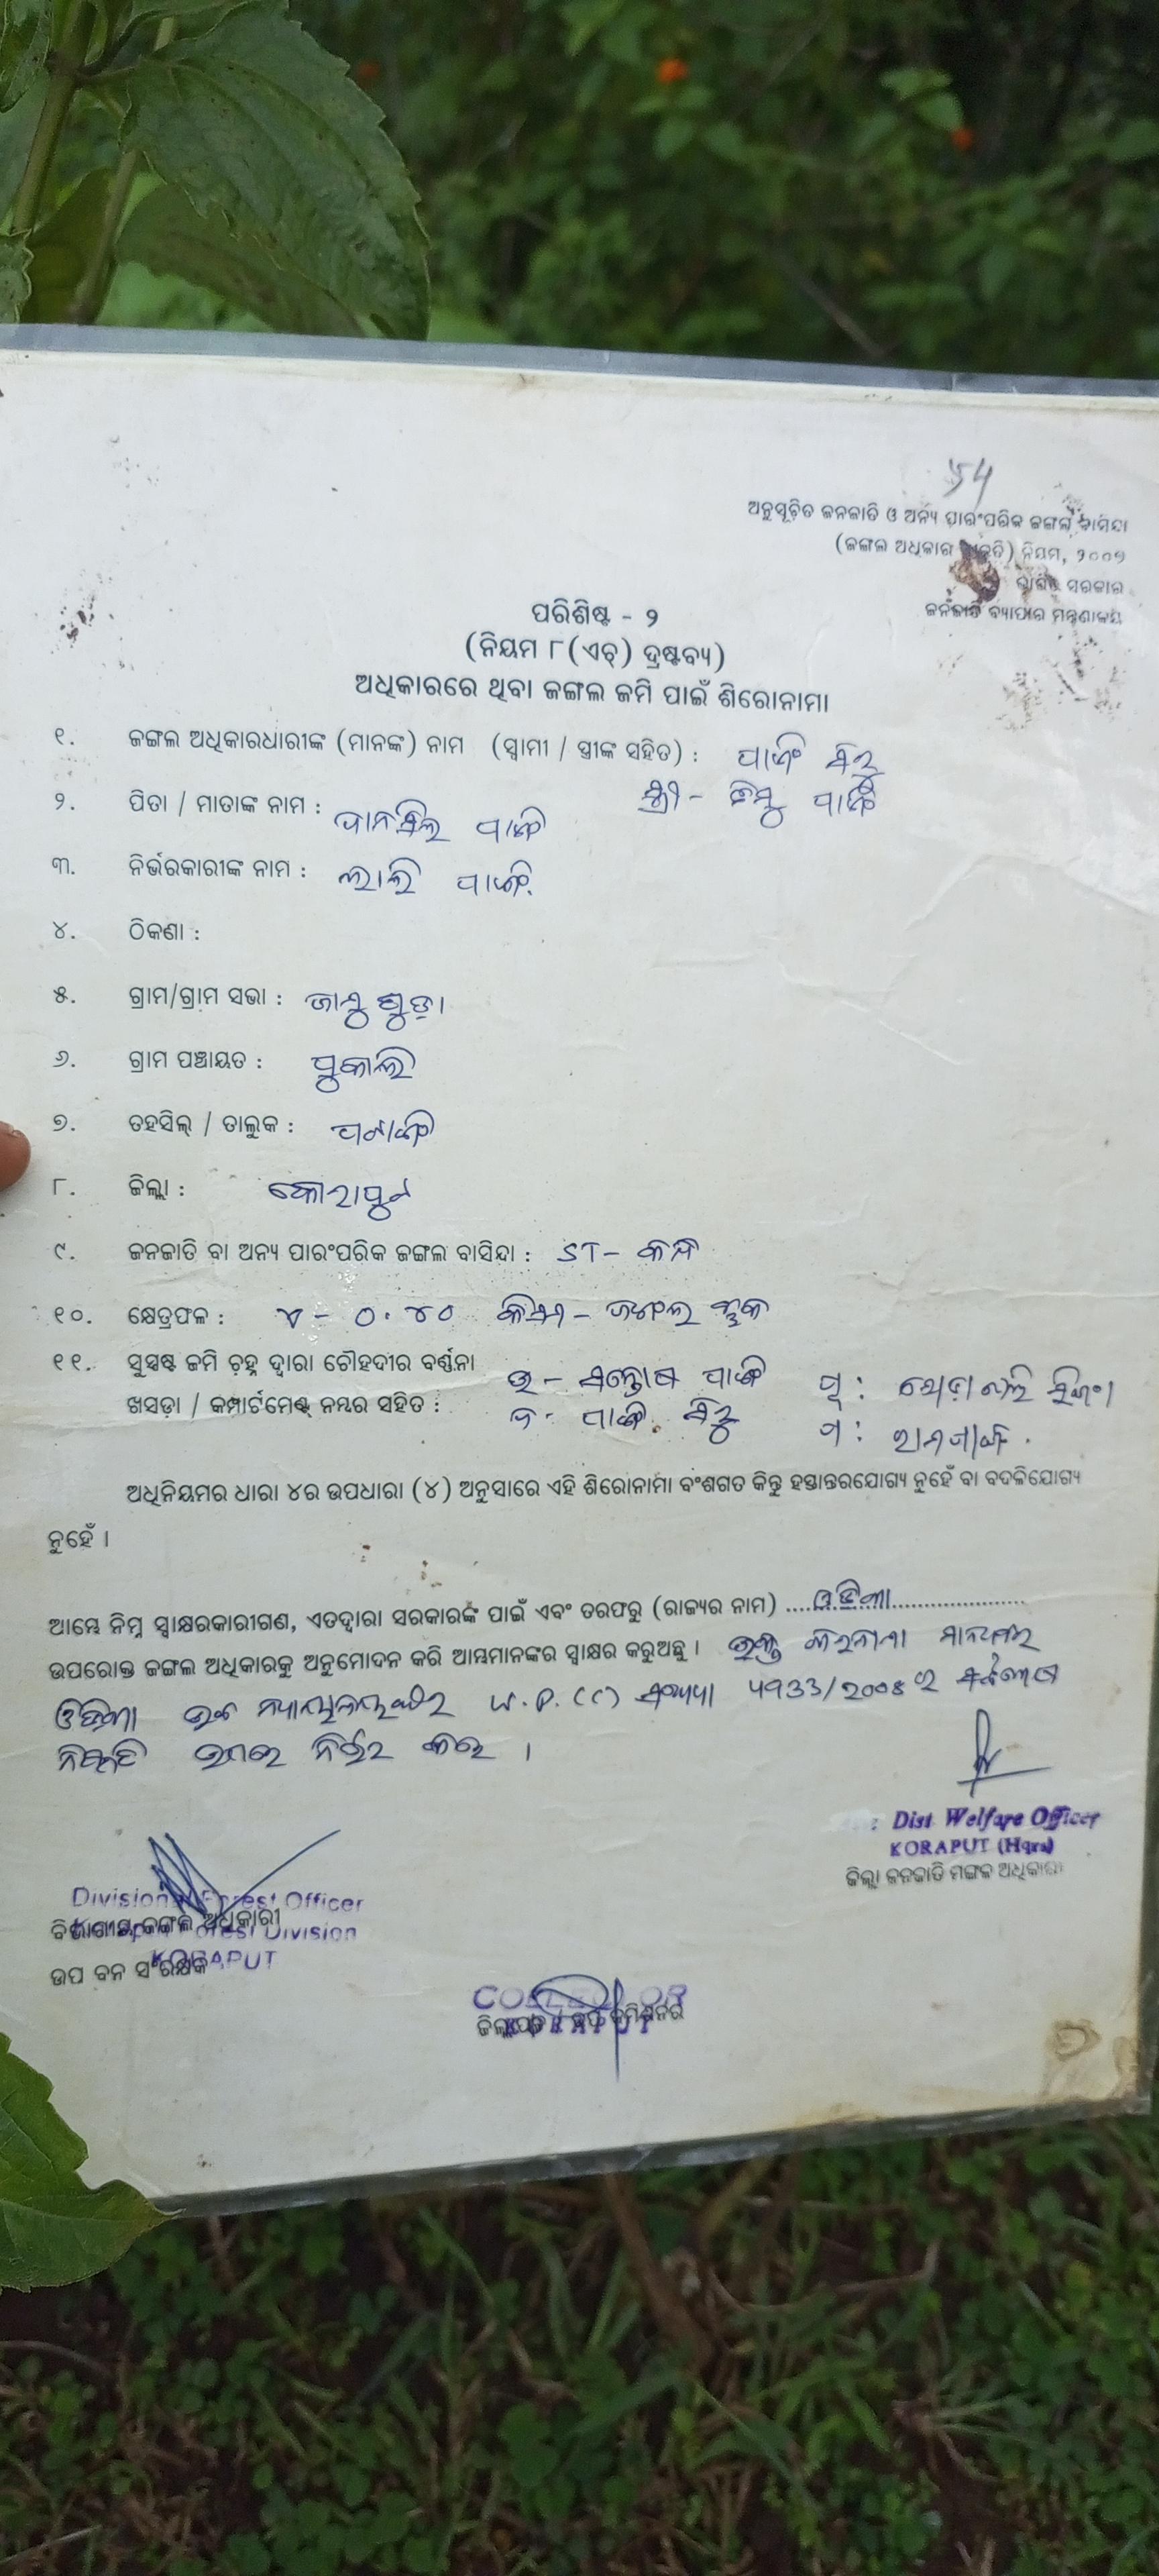 54
ଅନୁସୂଚିତ ଜନଜାତି ଓ ଅନ୍ୟ ପାରଂପରିକ ଜଙ୍ଗଲ ବାସିନ୍ଦା
(ଜଙ୍ଗଲ ଅଧିକାର ସ୍ୱୀକୃତି) ନିୟମ, ୨୦୦୭
ଭାରତ ସରକାର
ଜନଜାତି ବ୍ୟାପାର ମନ୍ତ୍ରଣାଳୟ
ପରିଶିଷ୍ଟ - ୨
(ନିୟମ ୮(ଏଚ୍) ଦ୍ରଷ୍ଟବ୍ୟ)
ଅଧିକାରରେ ଥିବା ଜଙ୍ଗଲ ଜମି ପାଇଁ ଶିରୋନାମା
୧. ଜଙ୍ଗଲ ଅଧିକାରଧାରୀଙ୍କ (ମାନଙ୍କ) ନାମ (ସ୍ୱାମୀ / ସ୍ତ୍ରୀଙ୍କ ସହିତ) :
ସ୍ତ୍ରୀ -
୨. ପିତା / ମାତାଙ୍କ ନାମ :
୩. ନିର୍ଭରକାରୀଙ୍କ ନାମ : ଲାଲି
୪. ଠିକଣା :
୫. ଗ୍ରାମ/ଗ୍ରାମ ସଭା :
୬. ଗ୍ରାମ ପଞ୍ଚାୟତ : ପୁକାଲି
୭. ତହସିଲ୍ / ତାଲୁକ : ପଟାଙ୍ଗି
୮. ଜିଲ୍ଲା : କୋରାପୁଟ
୯. ଜନଜାତି ବା ଅନ୍ୟ ପାରଂପରିକ ଜଙ୍ଗଲ ବାସିନ୍ଦା : ST - କନ୍ଧ
୧୦. କ୍ଷେତ୍ରଫଳ : ଏ - ୦.୪୦ କିସମ - ଜଙ୍ଗଲ
୧୧. ସୁସ୍ପଷ୍ଟ ଜମି ଚିହ୍ନ ଦ୍ୱାରା ଚୌହଦୀର ବର୍ଣ୍ଣନା ଉ - ସନ୍ତୋଷ ପୂ :
ଖସଡ଼ା / କମ୍ପାର୍ଟମେଣ୍ଟ୍ ନମ୍ବର ସହିତ : ଦ : ପ :
ଅଧିନିୟମର ଧାରା ୪ର ଉପଧାରା (୪) ଅନୁସାରେ ଏହି ଶିରୋନାମା ବଂଶଗତ କିନ୍ତୁ ହସ୍ତାନ୍ତରଯୋଗ୍ୟ ନୁହେଁ ବା ବଦଳିଯୋଗ୍ୟ
ନୁହେଁ ।
ଆମ୍ଭେ ନିମ୍ନ ସ୍ୱାକ୍ଷରକାରୀଗଣ, ଏତଦ୍ୱାରା ସରକାରଙ୍କ ପାଇଁ ଏବଂ ତରଫରୁ (ରାଜ୍ୟର ନାମ) ....ଓଡିଶା....
ଉପରୋକ୍ତ ଜଙ୍ଗଲ ଅଧିକାରକୁ ଅନୁମୋଦନ କରି ଆମ୍ଭମାନଙ୍କର ସ୍ୱାକ୍ଷର କରୁଅଛୁ । ଉକ୍ତ ମାନ୍ୟବର
ଓଡିଶା ଉଚ୍ଚ ନ୍ୟାୟାଳୟଙ୍କର W.P.(C) ସଂଖ୍ୟା 4933/2008 ର ସର୍ବଶେଷ
ନିଷ୍ପତ୍ତି ଉପରେ ନିର୍ଭର କରେ ।
Dist Welfare Officer
KORAPUT (Hqrs)
ଜିଲ୍ଲା ଜନଜାତି ମଙ୍ଗଳ ଅଧିକାରୀ
Divisional Forest Officer
ବିଭାଗୀୟ ଜଙ୍ଗଲ ଅଧିକାରୀ
Koraput Forest Division
KORAPUT
ଉପ ବନ ସଂରକ୍ଷକ
COLLECTOR
KORAPUT